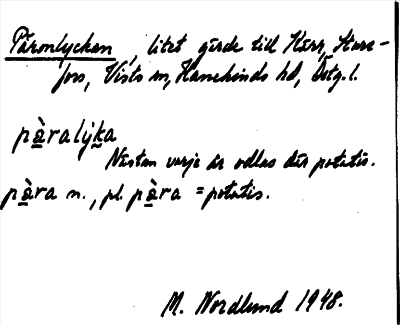 Päronlyckan, litet gärde till Kärr, Sture-
fors, Vists sn, Hanekinds hd, Östg. l.
pàralýka
Nästan varje år odlas där potatis.
pàra n., pl. pàra = potatis.
M. Nordlund 1948.